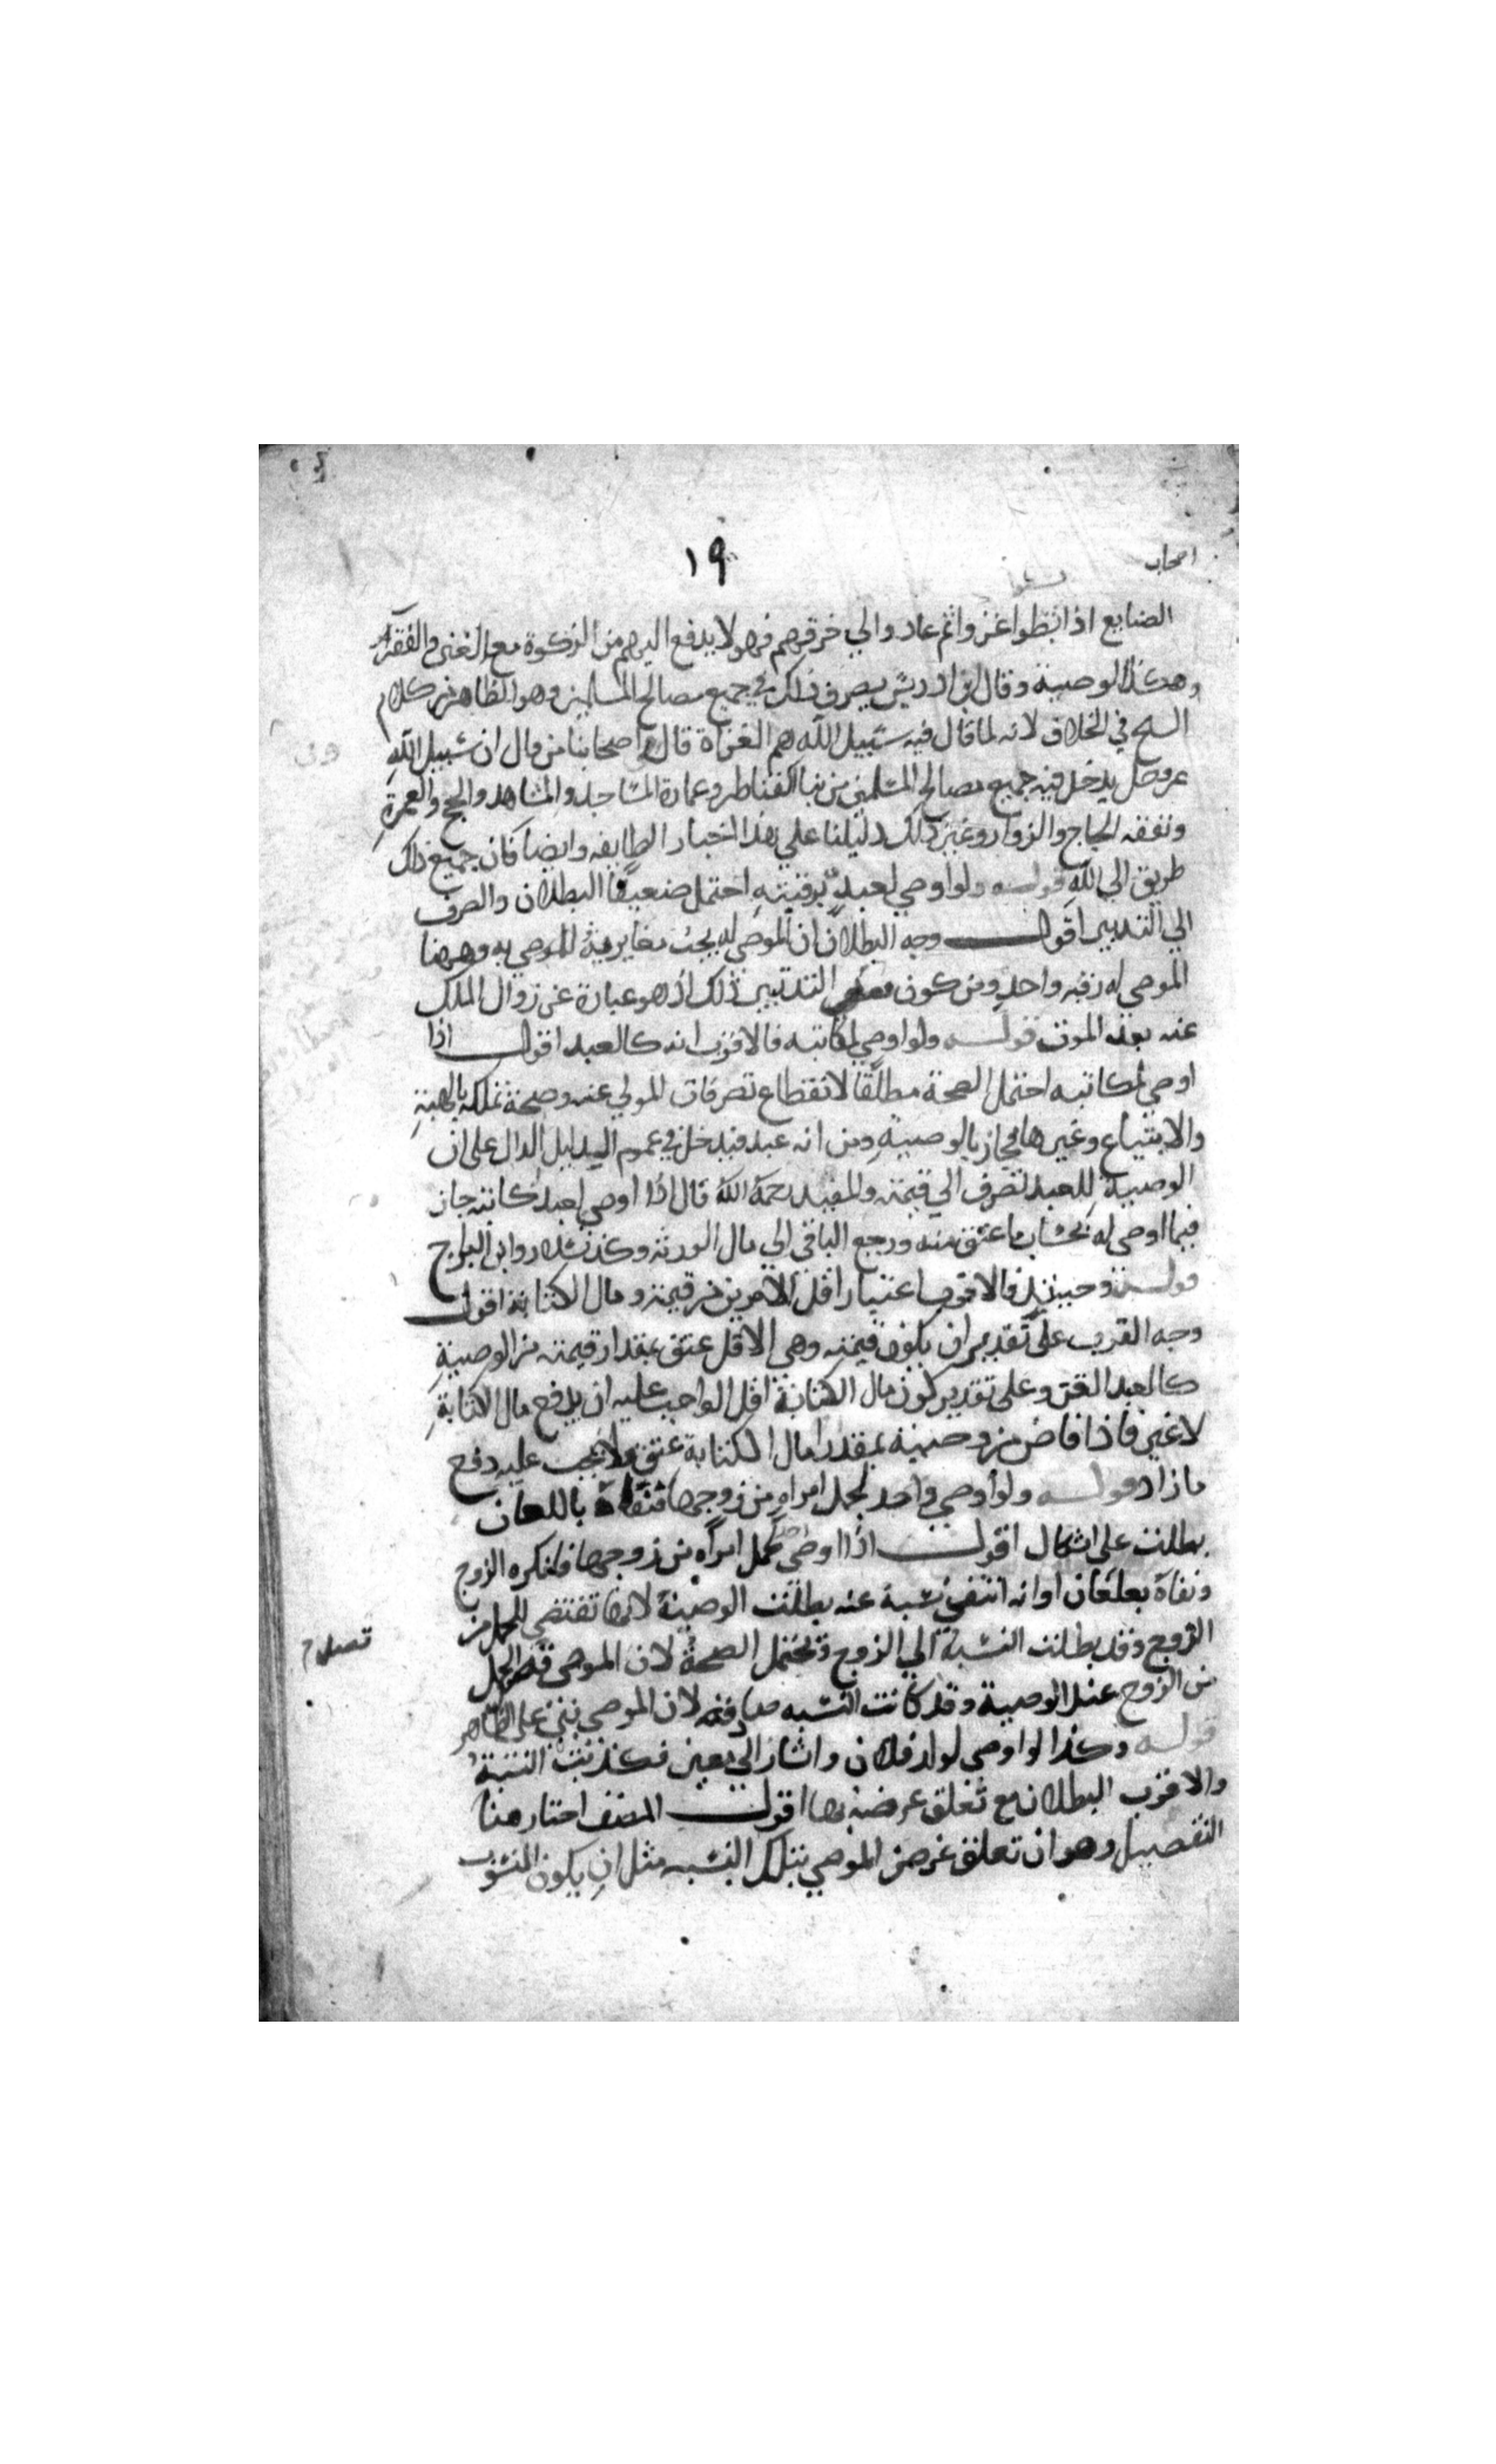 ١٩
اصحاب
الصنايع اذا نشطوا غزوا ثم عادوا الي حرفهم فهولا يدفع اليهم من الزكوة مع الغنى والفقر
وهكذا الوصية وقال ابن ادريس يصرف ذلك في جميع مصالح المسلمين وهو الظاهر من كلام
الشيخ في الخلاف لانه لما قال فيه سبيل الله هم الغزاة قال وفي اصحابنا من قال ان سبيل الله
يدخل فيه جميع مصالح المسلمين من بنا القناطر وعمارة المساجد والمشاهد والحج والعمرة
ونفقه الحاج والزوار وغير ذلك دليلنا علي هذا اخبار الطايفه وايضا فان جميع ذلك
طريق الي الله قوله ولو اوصي لعبد برقبته احتمل ضعيفا البطلان والصرف
الي التدبير اقول وجه البطلان ان الموصي له يجب مغايرته للموصي به وههنا
الموصي له رقبه واحد ومن كون معنى التدبير ذلك اذ هو عبارة عن زوال الملك
عنه بعد الموت قوله ولو اوصي لمكاتبه فالاقرب انه كالعبد اقول اذا
اوصي لمكاتبه احتمل الصحة مطلقا لانقطاع تصرفات المولي عنه وصحة تملكه بالهبة
والابتياع وغيرها فجاز بالوصية ومن انه عبد فيدخل في عموم الدليل الدال على ان
الوصية للعبد تصرف الي قيمته والمفيد رحمه الله قال اذا اوصي لعبد كاتبه جاز
فيما اوصى له بحساب ما عتق منه ورجع الباقي الي مال الورثه وكذا سلار وابن البراج
قوله وحينئذ فالاقرب اعتبار اقل الامرين من قيمته ومال الكتابة اقول
وجه القرب على تقدير ان يكون قيمته وهي الاقل عتق بمقدار قيمته من الوصية
كالعبد القن وعلى تقدير كون مال الكتابة اقل الواجب عليه ان يدفع مال الكتابة
لا غير فاذا فاض من وصيته بمقدار مال الكتابة عتق ولا يجب عليه دفع
ما زاد قوله ولو اوصي واحد لحمل امراه من زوجها فنفاه باللعان
بطلت علي اشكال اقول اذا اوصى لحمل امراه من زوجها فانكره الزوج
ونفاه بعلعان او انه انتفى نسبه عنه بطلت الوصية لانها تقتضي للحمل من
الزوج وقد بطلت النسبة الي الزوج وتحتمل الصحة لان الموصي قصد الحمل
قصد
من الزوج عند الوصية وقد كانت النسبه صادقه لان الموصي بنى على الظاهر
قوله وكذا لو اوصى لولد فلان واشار الي معين فكذبت النسبة
والاقرب البطلان مع تعلق غرضه بها اقول المصنف اختار هنا
التفصيل وهو ان تعلق غرض الموصي بتلك النسبه مثل ان يكون المنسوب